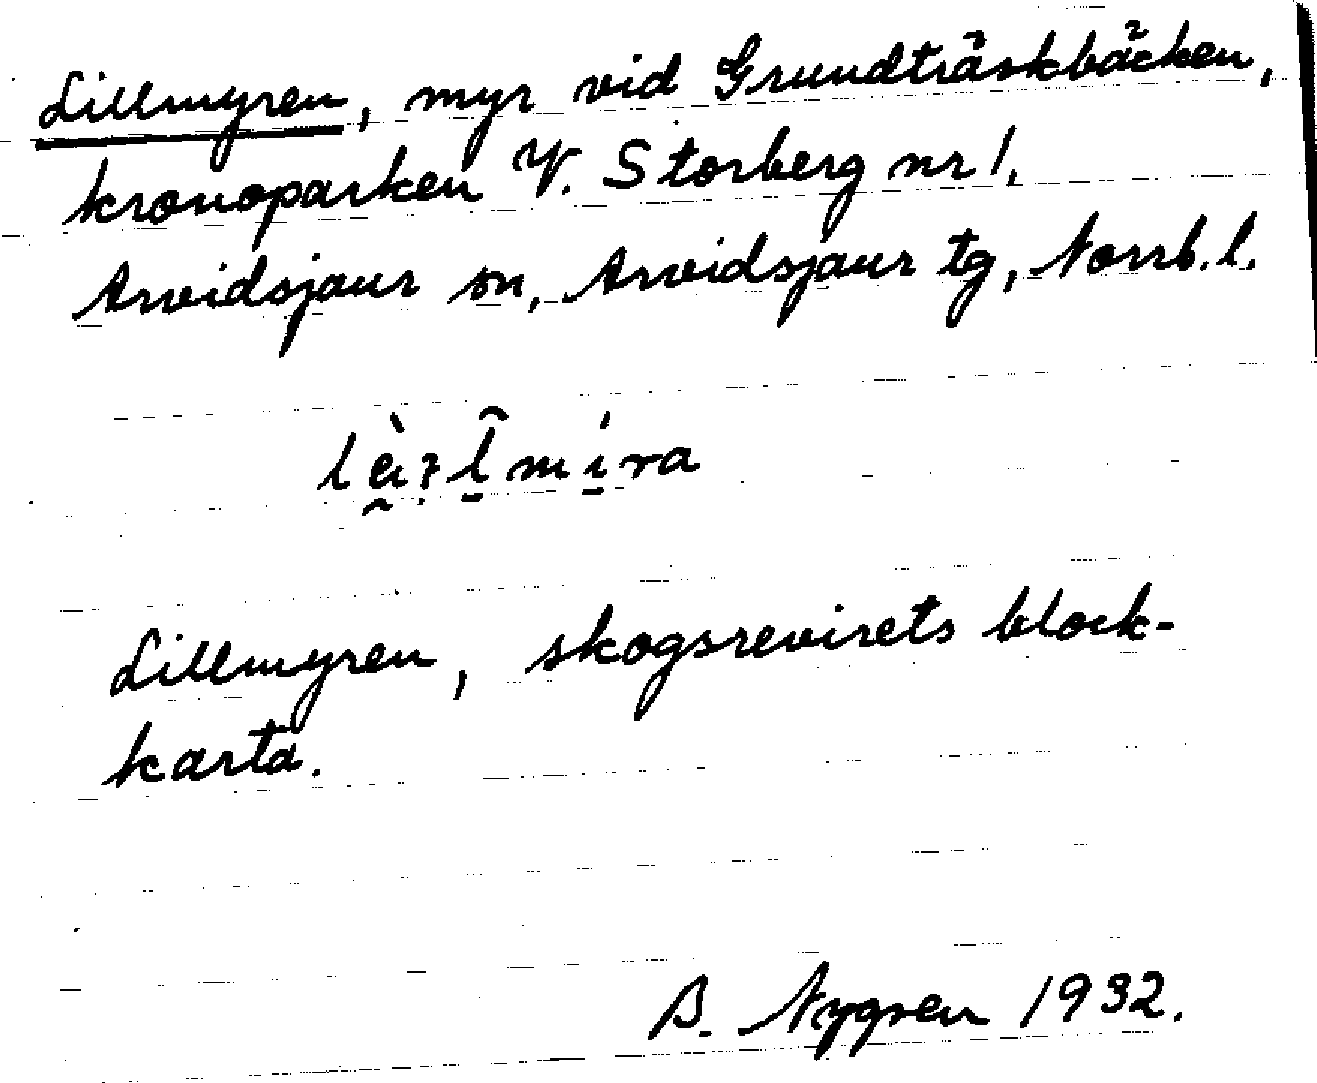 Lillmyren, myr vid Grundträskbäcken,
kronoparken V. Storberg nr 1.
Arvidsjaur sn, Arvidsjaur tg, Norrb. l.
Lillmyren, skogsrevirets block-
karta.
B. Nygren 1932.